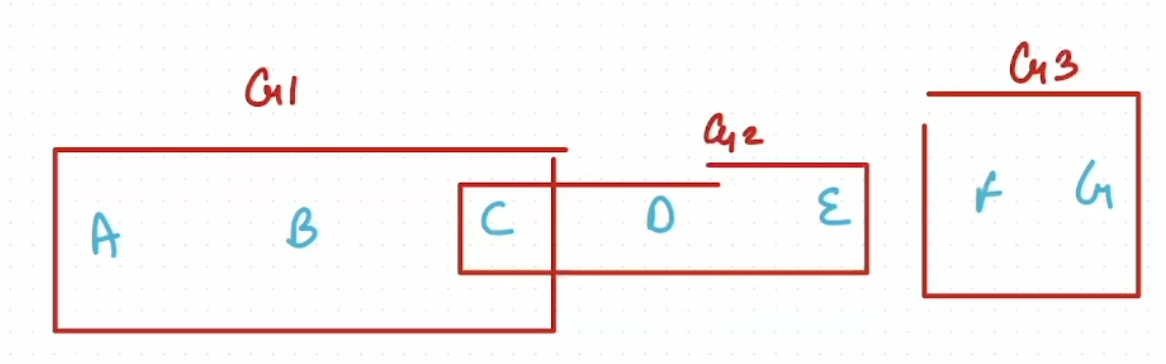 G1
G2
G3
A B C D E F G